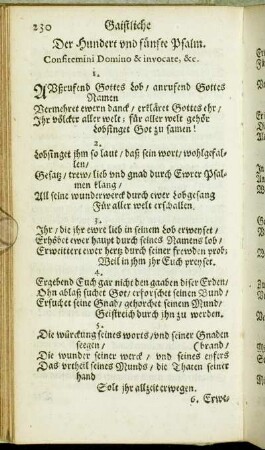 230 Gaistliche
Der Hundert vnd fünfte Psalm.
Confitemini Domino & invocate, &c.
1.
AUßrufend Gottes Lob/ anrufend Gottes
Namen
Vermehret ewern danck/ erkläret Gottes ehr/
Ihr völcker aller welt: für aller welt gehör
Lobsinget Got zu samen!
2.
Lobsinget jhm so laut/ daß sein wort/ wohlgefal-
len/
Gesatz/ trew/ lieb vnd gnad durch Ewrer Psal-
men klang/
All seine wunderwerck durch ewer Lobgesang
Für aller welt erschallen.
3.
Ihr/ die jhr ewre lieb in seinem Lob erweyset/
Erhöbet ewer haupt durch seines Namens lob/
Erweittere ewer hertz durch seiner frewden prob/
Weil in jhm jhr Euch preyset.
4.
Ergebend Euch gar nicht den gaaben diser Erden/
Ohn ablaß suchet Got/ erforschet seinen Bund/
Ersuchet seine Gnad/ gehorchet seinem Mund/
Geistreich durch jhn zu werden.
5.
Die würckung seines worts/ vnd seiner Gnaden
seegen/ (brand/
Die wunder seiner werck/ vnd seines eyfers
Das vrtheil seines Munds/ die Thaten seiner
hand
Solt jhr allzeit erwegen.
6. Erwe-